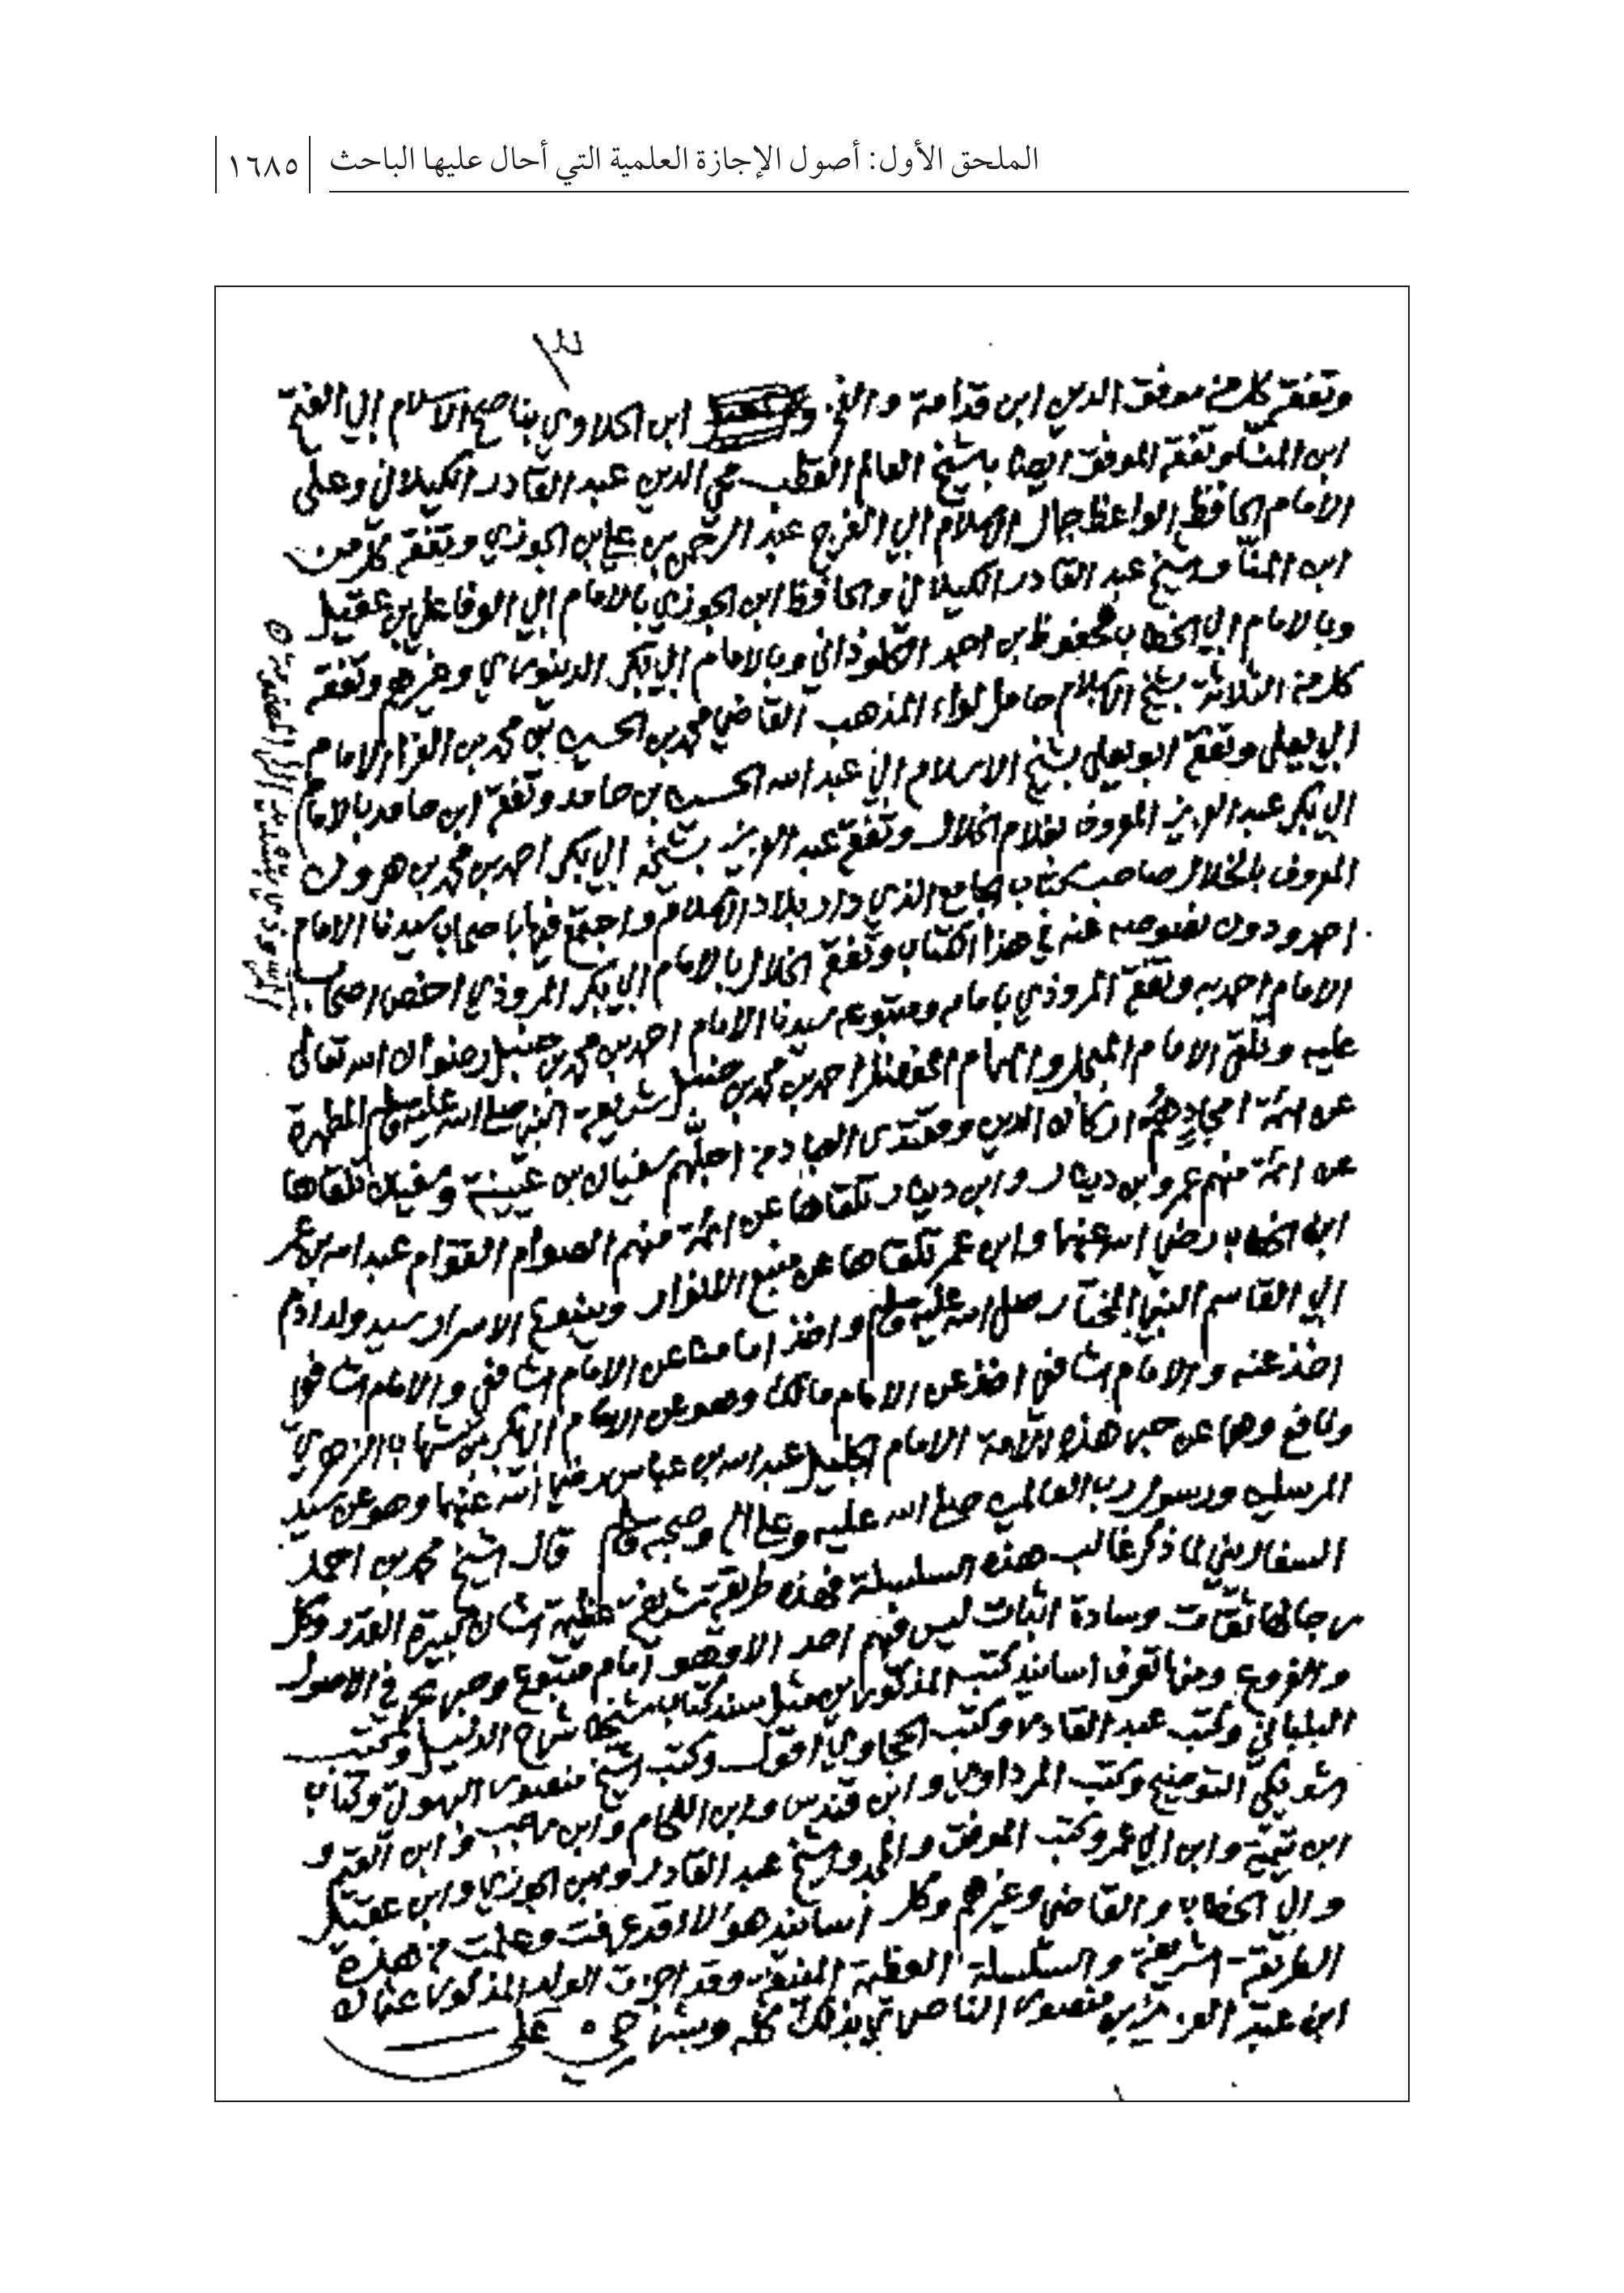 الملحق الأول: أصول الإجازة العلمية التي أحال عليها الباحث
١٦٨٥
٣
وتفقه كل من موفق الدين ابن قدامة والفخر ابن الحلاوي بناصح الاسلام ابي الفتح
ابن المنا وتفقه الموفق ايضا بالشيخ العالم القطب محي الدين عبد القادر الكيلاني وعلى
الامام الحافظ الواعظ جمال الاسلام ابي الفرج عبد الرحمن بن علي بن الجوزي وتفقه كل من
ابن المنا والشيخ عبد القادر الكيلاني والحافظ ابن الجوزي بالامام ابي الوفا علي بن عقيل
وبالامام ابي الخطاب محفوظ بن احمد الكلوذاني وبالامام ابي بكر الدينوري وغيرهم وتفقه
كل من الثلاثة بشيخ الاسلام حامل لواء المذهب القاضي محمد بن الحسين بن محمد بن الفراء الامام
ابي يعلى وتفقه ابو يعلى بشيخ الاسلام ابي عبد الله الحسين بن حامد وتفقه ابن حامد بالامام
ابي بكر عبد العزيز المعروف بغلام الخلال وتفقه عبد العزيز بشيخه ابي بكر احمد بن محمد بن هرون
المعروف بالخلال صاحب كتاب الجامع الذي دار بلاد الاسلام واجتمع فيها باصحاب سيدنا الامام
احمد ودون نصوصه عنه في هذا الكتاب وتفقه الخلال بالامام ابي بكر المروذي اخص اصحاب
الامام احمد به وتفقه المروذي بامامه ومتبوعه سيدنا الامام احمد بن محمد بن حنبل رضوان الله تعالى
عليه وتلقى الامام المبجل والهمام المفضل احمد بن محمد بن حنبل شريعة النبي صلى الله عليه وسلم المطهرة
عن ائمة امجاد هم اركان الدين ومقتدى العباد من اجلهم سفيان بن عيينة وسفيان تلقاها
عن ائمة منهم عمرو بن دينار وابن دينار تلقاها عن ائمة منهم الصوام القوام عبد الله بن عمر
ابن الخطاب رضي الله عنهما وابن عمر تلقاها عن منبع الانوار وينبوع الاسرار سيد ولد ادم
ابي القاسم النبي المختار صلى الله عليه وسلم واخذ امامنا عن الامام الشافعي والامام الشافعي
اخذ عنه والامام الشافعي اخذ عن الامام مالك وهو عن الامام ابي بكر بن شهاب الزهري
ونافع وهما عن حبر هذه الامة الامام الجليل عبد الله بن عباس رضي الله عنهما وهو عن سيد
المرسلين ورسول رب العالمين صلى الله عليه وعلى اله وصحبه وسلم قال الشيخ محمد بن احمد
السفاريني لما ذكر غالب هذه السلسلة فهذه طريقة شريفة عظيمة الشان كبيرة القدر وكل
رجالها ثقات وسادة اثبات ليس فيهم احد الا وهو امام متبوع وحبر في الاصول
والفروع ومنها تعرف اسانيد كتب المذكورين مثل سند كتاب شيخنا شارح الدليل وكتب
البلباني وكتب عبد القادر وكتب الحجاوي اقول وكتب الشيخ منصور البهوتي وكتاب
الشويكي التوضيح وكتب المرداوي وابن قندس وابن اللحام وابن رجب وابن القيم و
ابن تيمية وابن ابي عمر وكتب الموفق والمجد والشيخ عبد القادر وابن الجوزي وابن عقيل
وابي الخطاب والقاضي وغيرهم وكل اسانيد هؤلاء قد عرفت وعلمت من هذه
الطريقة الشريفة والسلسلة العظيمة المنيفة وقد اجزت الولد المذكور عثمان
ابن عبد العزيز بن منصور الناصري بذلك كله وبشرحي على